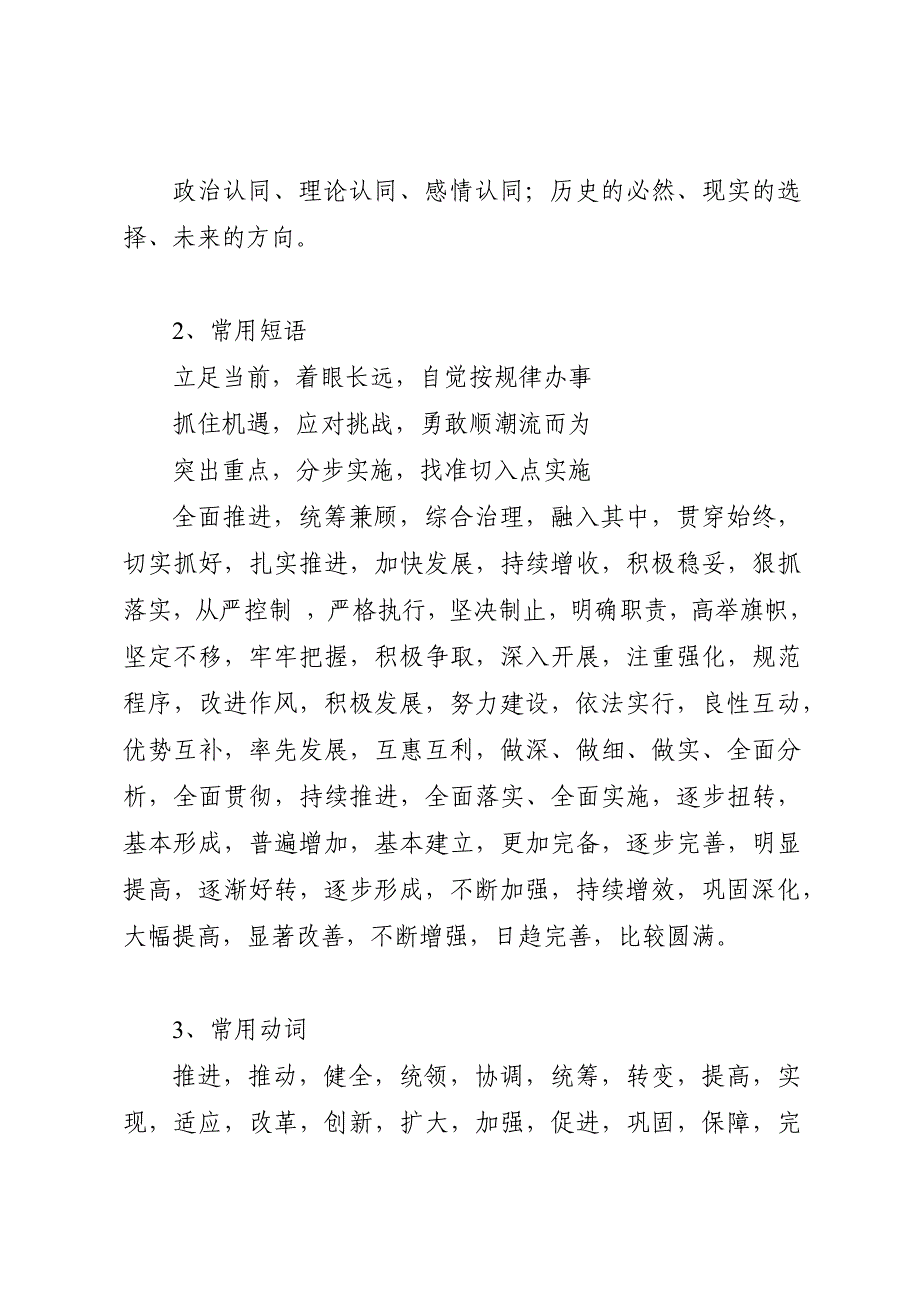 政治认同、理论认同、感情认同；历史的必然、现实的选
择、未来的方向。
2、常用短语
立足当前，着眼长远，自觉按规律办事
抓住机遇，应对挑战，勇敢顺潮流而为
突出重点，分步实施，找准切入点实施
全面推进，统筹兼顾，综合治理，融入其中，贯穿始终，
切实抓好，扎实推进，加快发展，持续增收，积极稳妥，狠抓
落实，从严控制 ，严格执行，坚决制止，明确职责，高举旗帜，
坚定不移，牢牢把握，积极争取，深入开展，注重强化，规范
程序，改进作风，积极发展，努力建设，依法实行，良性互动，
优势互补，率先发展，互惠互利，做深、做细、做实、全面分
析，全面贯彻，持续推进，全面落实、全面实施，逐步扭转，
基本形成，普遍增加，基本建立，更加完备，逐步完善，明显
提高，逐渐好转，逐步形成，不断加强，持续增效，巩固深化，
大幅提高，显著改善，不断增强，日趋完善，比较圆满。
3、常用动词
推进，推动，健全，统领，协调，统筹，转变，提高，实
现，适应，改革，创新，扩大，加强，促进，巩固，保障，完